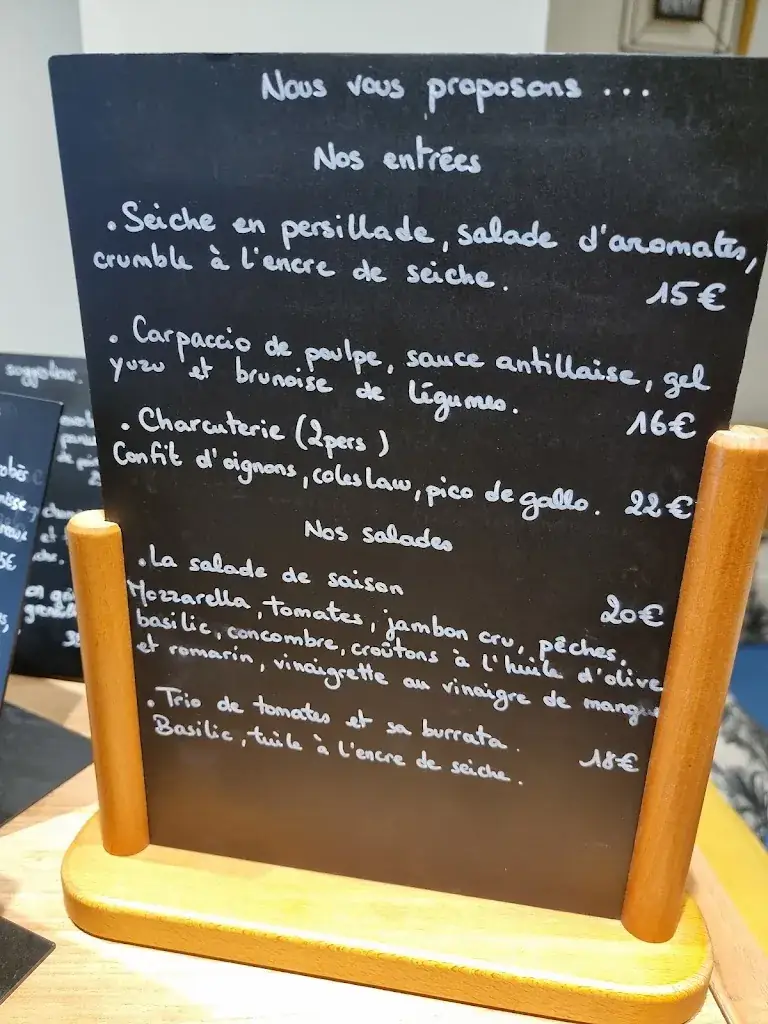 Nous vous proposons ...
Nos entrées
. Seiche en persillade, salade d'aromates,
crumble à l'encre de seiche.
15€
. Carpaccio de poulpe, sauce antillaise, gel
yuzu et brunoise de légumes.
16€
. Charcuterie (2pers)
Confit d'oignons, coleslaw, pico de gallo. 22€
Nos salades
. La salade de saison
20€
Mozzarella, tomates, jambon cru, pêches,
basilic, concombre, croûtons à l'huile d'olive
et romarin, vinaigrette au vinaigre de mangue
. Trio de tomates et sa burrata.
Basilic, tuile à l'encre de seiche.
18€
suggestion.